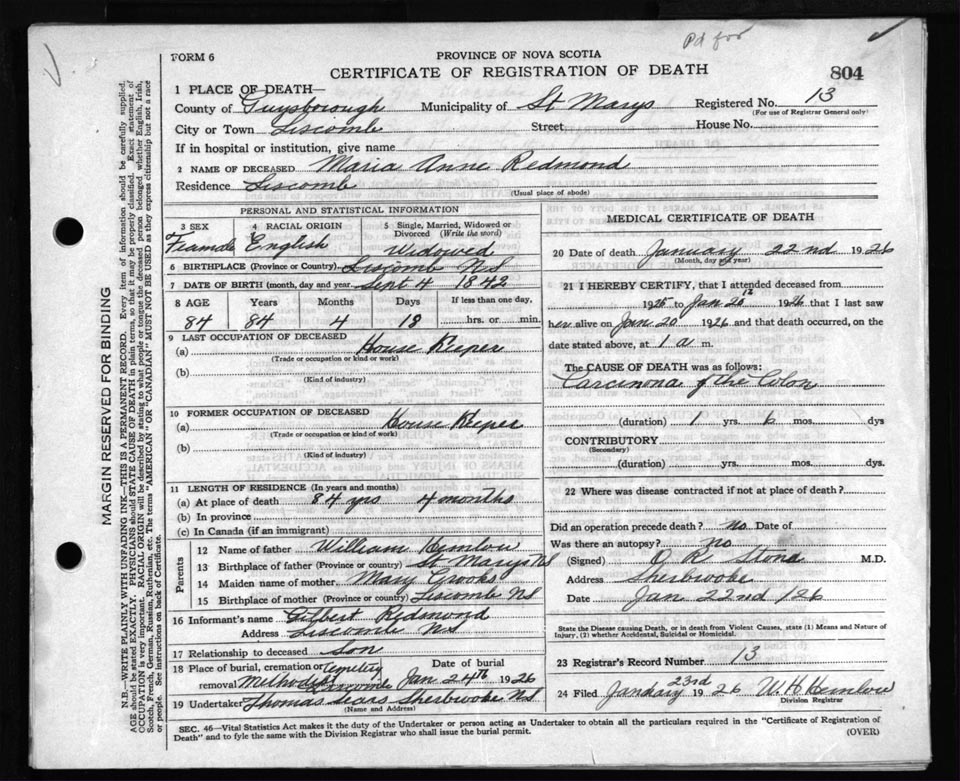 Pd for
FORM 6
PROVINCE OF NOVA SCOTIA
CERTIFICATE OF REGISTRATION OF DEATH
804
1 PLACE OF DEATH—
County of Guysborough Municipality of St Marys Registered No. 13
(For use of Registrar General only)
City or Town Liscomb Street House No.
If in hospital or institution, give name
2 NAME OF DECEASED Maria Anne Redmond
Residence Liscomb
(Usual place of abode)
PERSONAL AND STATISTICAL INFORMATION
3 SEX 4 RACIAL ORIGIN 5 Single, Married, Widowed or Divorced (Write the word)
Feamale English Widowed
6 BIRTHPLACE (Province or Country) Liscomb NS
7 DATE OF BIRTH (month, day and year) Sept 4 1842
8 AGE Years Months Days If less than one day,
84 84 4 18 hrs. or min.
9 LAST OCCUPATION OF DECEASED
(a) House Keeper
(Trade or occupation or kind or work)
(b)
(Kind of industry)
10 FORMER OCCUPATION OF DECEASED
(a) House Keeper
(Trade or occupation or kind of work)
(b)
(Kind of industry)
11 LENGTH OF RESIDENCE (In years and months)
(a) At place of death 84 yrs 4 months
(b) In province
(c) In Canada (if an immigrant)
Parents
12 Name of father William Hemlow
13 Birthplace of father (Province or country) St Marys NS
14 Maiden name of mother Mary Crooks
15 Birthplace of mother (Province or country) Liscomb NS
16 Informant's name Gilbert Redmond
Address Liscomb NS
17 Relationship to deceased Son
18 Place of burial, cremation or removal Methodist Cemetery Liscomb
Date of burial
Jan 24th 1926
19 Undertaker Thomas Sears Sherbrooke NS
(Name and Address)
MEDICAL CERTIFICATE OF DEATH
20 Date of death January 22nd 1926
(Month, day and year)
21 I HEREBY CERTIFY, that I attended deceased from
1925 to Jan 20th 1926 that I last saw
her alive on Jan 20 1926 and that death occurred, on the
date stated above, at 1 a m.
The CAUSE OF DEATH was as follows:
Carcinona of the Colon
(duration) 1 yrs. 6 mos. dys
CONTRIBUTORY
(Secondary)
(duration) yrs. mos. dys.
22 Where was disease contracted if not at place of death?
Did an operation precede death? no Date of
Was there an autopsy? no
(Signed) O R Stone M.D.
Address Sherbrooke
Date Jan 22nd /26
State the Disease causing Death, or in death from Violent Causes, state (1) Means and Nature of
Injury, (2) whether Accidental, Suicidal or Homicidal.
23 Registrar's Record Number 13
24 Filed January 23rd 1926 W. H. Hemlow
Division Registrar
SEC. 46—Vital Statistics Act makes it the duty of the Undertaker or person acting as Undertaker to obtain all the particulars required in the "Certificate of Registration of
Death" and to fyle the same with the Division Registrar who shall issue the burial permit.
(OVER)
MARGIN RESERVED FOR BINDING
N.B.—WRITE PLAINLY WITH UNFADING INK—THIS IS A PERMANENT RECORD. Every item of information should be carefully supplied.
AGE should be stated EXACTLY. PHYSICIANS should STATE CAUSE OF DEATH in plain terms, so that it may be properly classified. Exact statement of
OCCUPATION is very important. RACIAL ORIGIN will be described by stating to what people or tongue the deceased person belonged whether English, Irish,
Scotch, French, German, Russian, Ruthenian, etc. The terms "AMERICAN" OR "CANADIAN" MUST NOT BE USED as they express citizenship but not a race
or people. See instructions on back of Certificate.